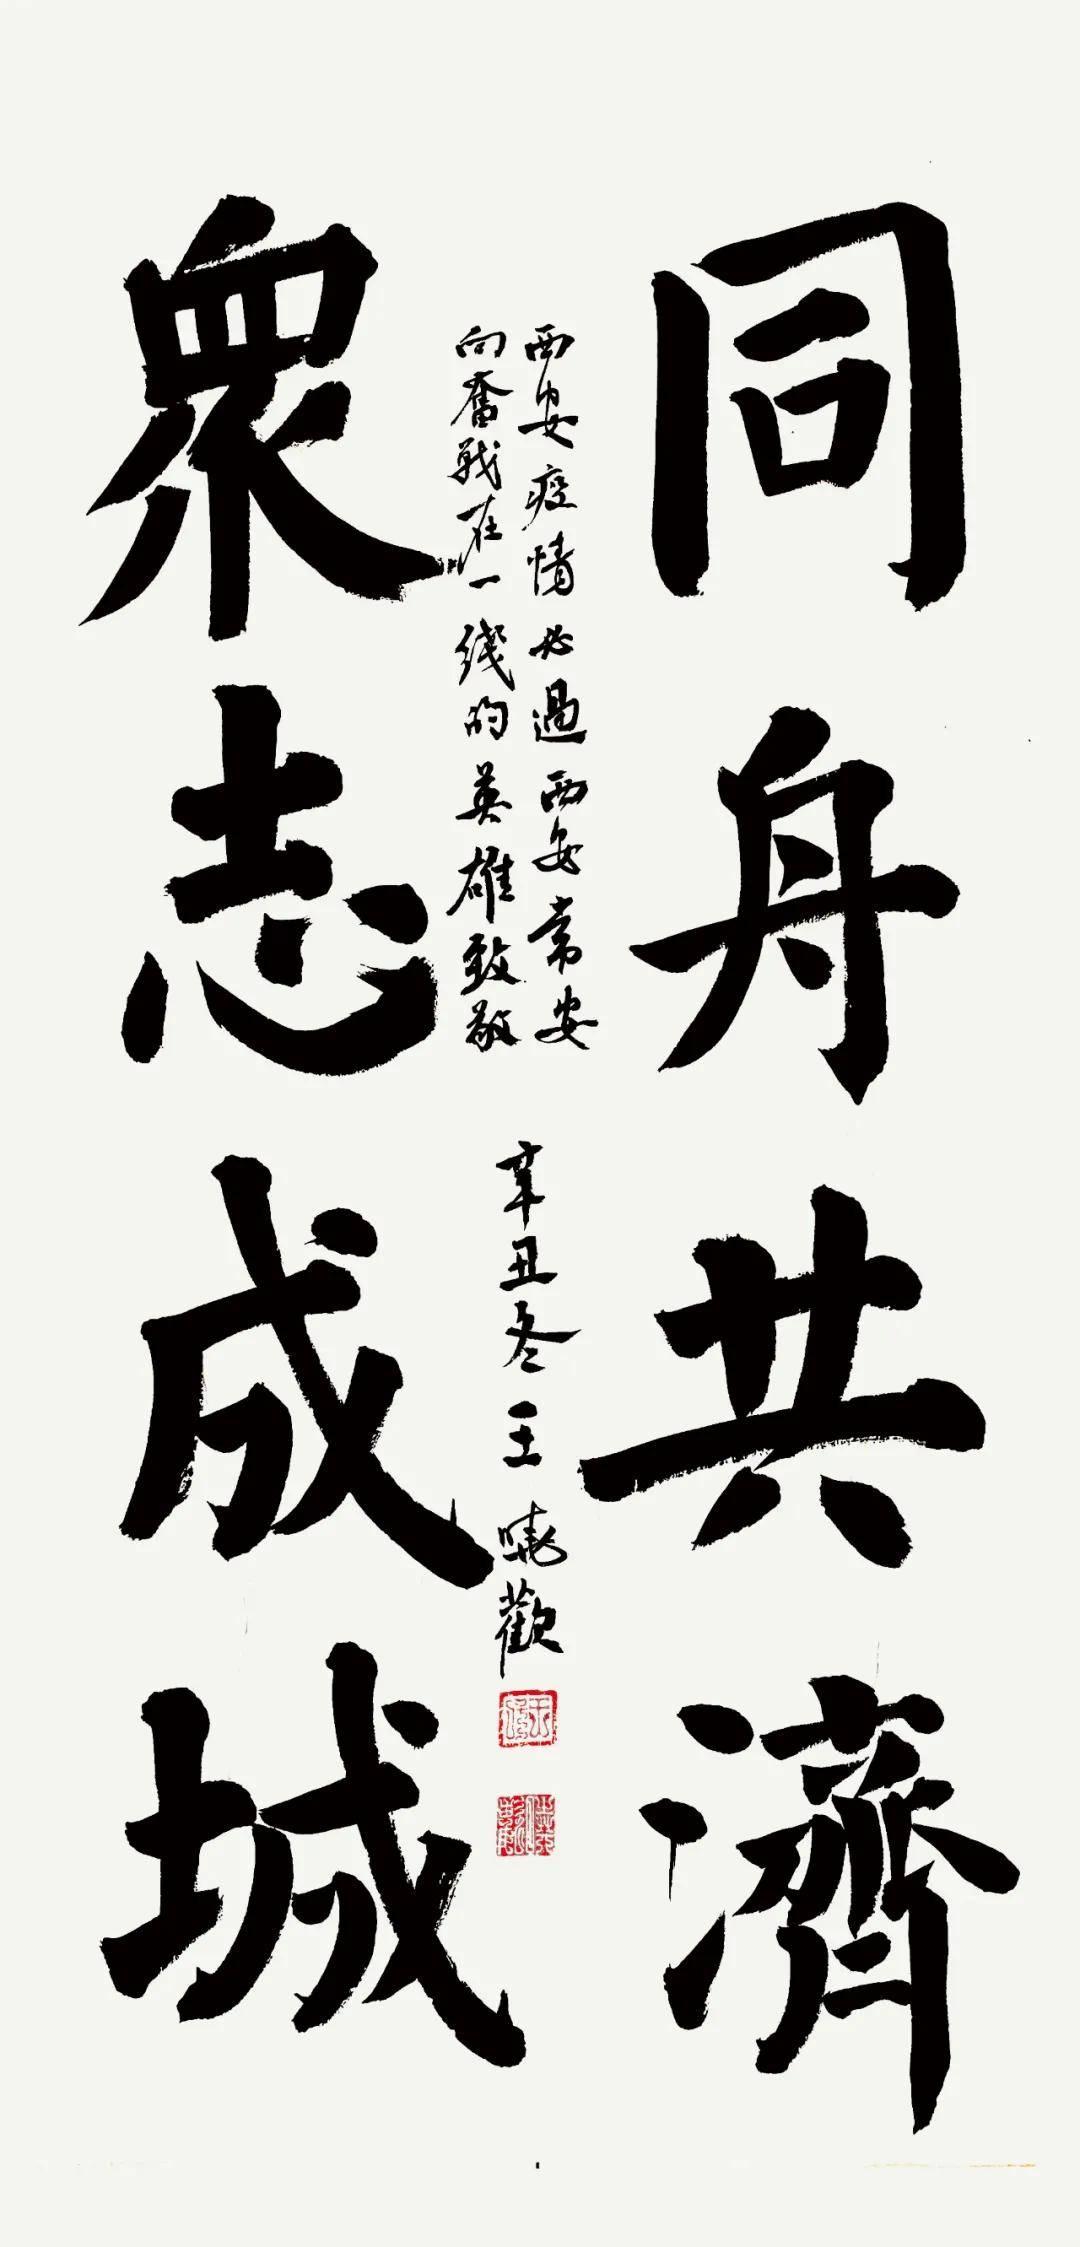 同舟共濟
西安疫情必過西安常安
向奮戰在一綫的英雄致敬
辛丑冬王曉歡
衆志成城